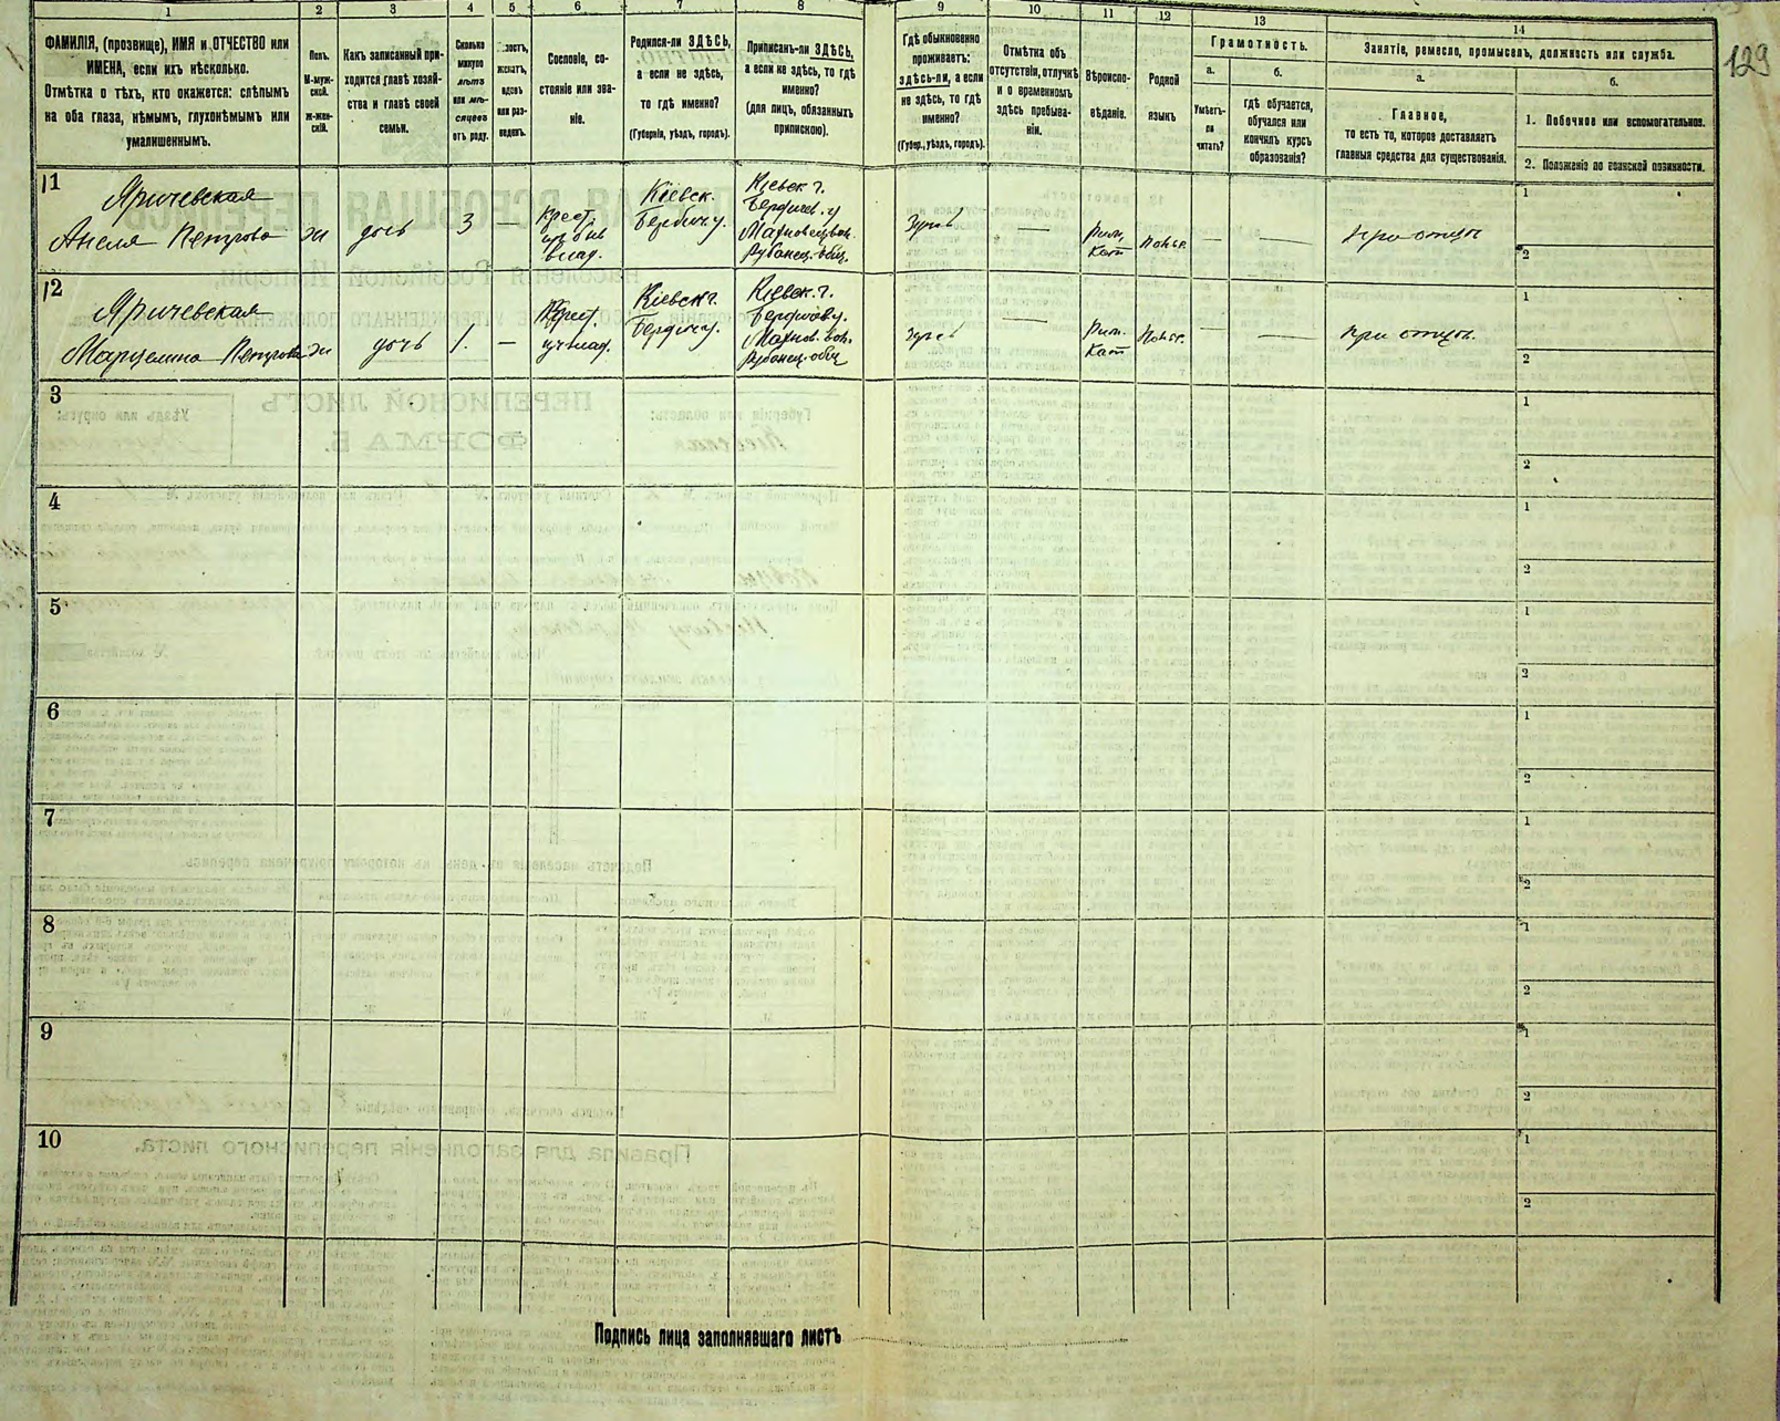 129
1
2
3
4
5
6
7
8
9
10
11
12
13
14
ФАМИЛІЯ, (прозвище), ИМЯ и ОТЧЕСТВО или
ИМЕНА, если ихъ нѣсколько.
Отмѣтка о тѣхъ, кто окажется: слѣпымъ
на оба глаза, нѣмымъ, глухонѣмымъ или
умалишеннымъ.
Полъ.
М-муж-
ской.
ж-жен-
скій.
Какъ записанный при-
ходится главѣ хозяй-
ства и главѣ своей
семьи.
Сколько
минуло
лѣтъ
или мѣ-
сяцевъ
отъ роду.
женатъ,
вдовъ
или раз-
веденъ.
Сословіе, со-
стояніе или зва-
ніе.
Родился-ли ЗДѢСЬ,
а если не здѣсь,
то гдѣ именно?
(Губернія, уѣздъ, городъ).
Приписанъ-ли ЗДѢСЬ,
а если не здѣсь, то гдѣ
именно?
(для лицъ, обязанныхъ
припискою).
Гдѣ обыкновенно
проживаетъ:
здѣсь-ли, а если
не здѣсь, то гдѣ
именно?
(Губер., уѣздъ, городъ).
Отмѣтка объ
отсутствіи, отлучкѣ
и о временномъ
здѣсь пребыва-
ніи.
Вѣроиспо-
вѣданіе.
Родной
языкъ
Грамотность.
а.
Умѣетъ-
ли
читать?
б.
гдѣ обучается,
обучался или
кончилъ курсъ
образованія?
Занятіе, ремесло, промыселъ, должность или служба.
а.
Главное,
то есть то, которое доставляетъ
главныя средства для существованія.
б.
1. Побочное или вспомогательное.
2. Положеніе по воинской повинности.
1
Яричевская
Анеля Петрова
ж
дочь
3
—
Крест.
влад.
Кіевск.
Бердич. у.
Кіевск. г.
Бердичев. у
Рубанец. общ.
здѣсь
—
Рим.
Кат
Польс.
—
—
при отцѣ
1
2
2
Яричевская
Марцелина Петрова
ж
дочь
1.
—
Крест.
Кіевск г.
Бердич у.
Кіевск. г.
Махнов. вол.
Рубанец. общ
здѣсь
—
Рим.
Кат
Польс.
—
—
при отцѣ.
1
2
3
1
2
4
1
2
5
1
2
6
1
2
7
1
2
8
1
2
9
1
2
10
1
2
Подпись лица заполнявшаго листъ